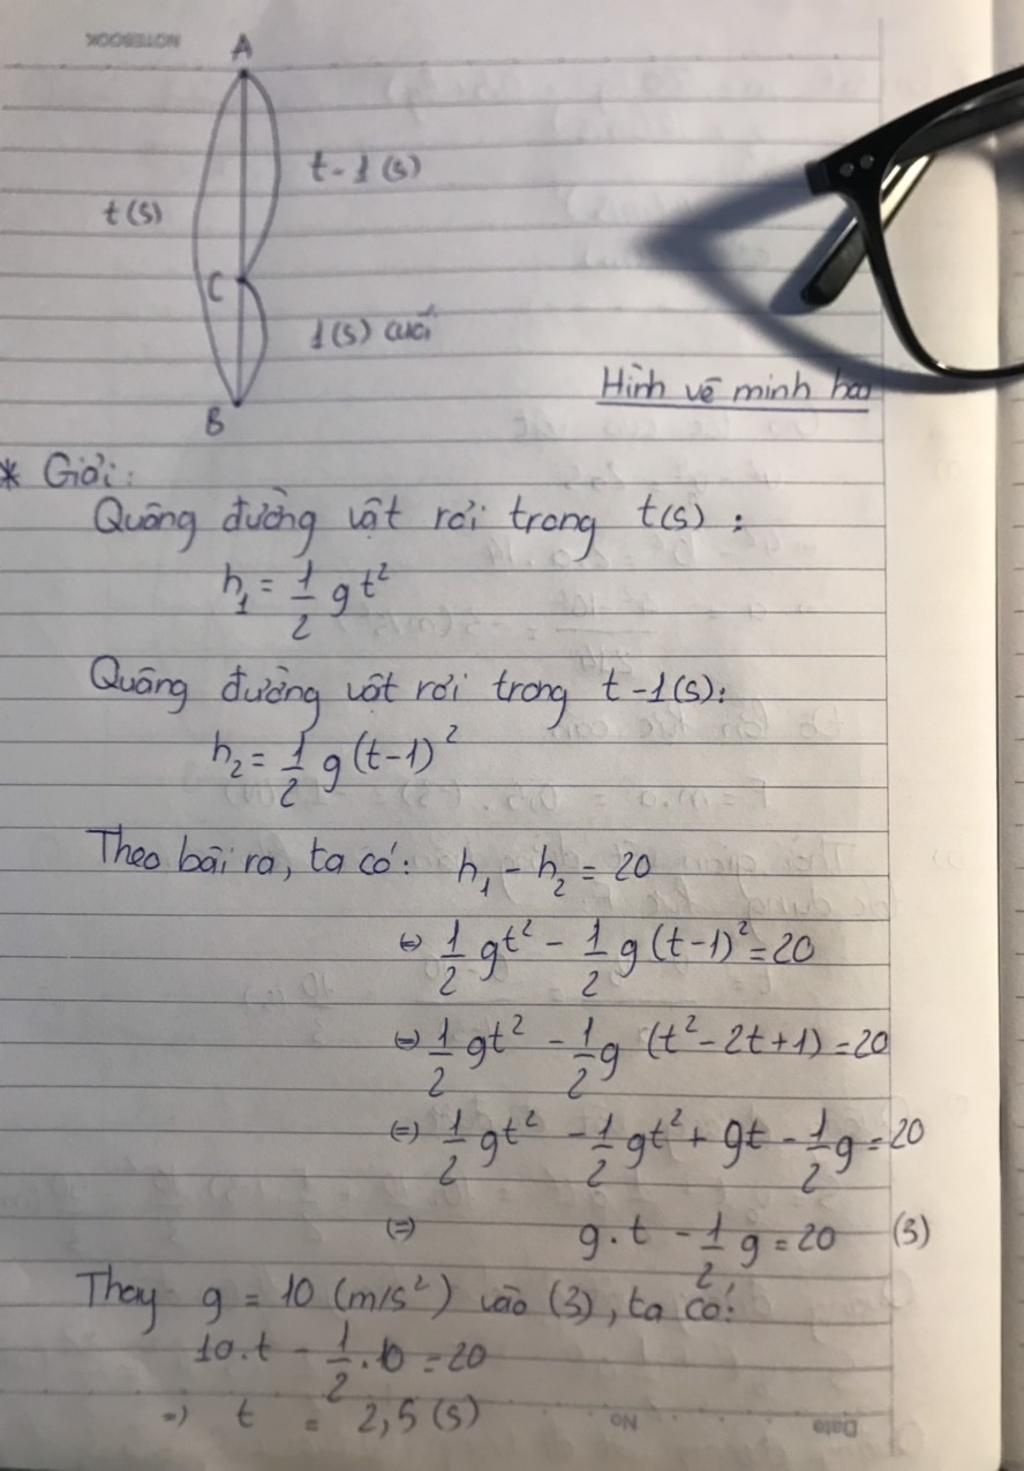 NOTEBOOK
A
t - 1 (s)
t (s)
C
1 (s) cuối
Hình vẽ minh hoạ
B
* Giải:
Quãng đường vật rơi trong t(s) :
h₁ = 1/2 gt²
Quãng đường vật rơi trong t-1(s):
h₂ = 1/2 g(t-1)²
Theo bài ra, ta có: h₁ - h₂ = 20
⇔ 1/2 gt² - 1/2 g(t-1)² = 20
⇔ 1/2 gt² - 1/2 g (t² - 2t + 1) = 20
⇔ 1/2 gt² - 1/2 gt² + gt - 1/2 g = 20
⇔ g.t - 1/2 g = 20 (3)
Thay g = 10 (m/s²) vào (3), ta có:
10.t - 1/2 . 10 = 20
⇒ t = 2,5 (s)
No
Date